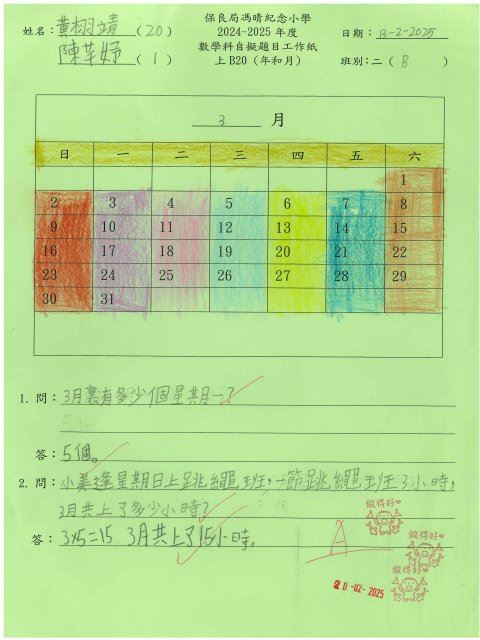 保良局馮晴紀念小學
姓名：黃栩靖 (20) 2024-2025 年度 日期：13-2-2025
陳芊妤 (1) 數學科自擬題目工作紙
上 B20（年和月） 班別：二 ( B )
3 月
日 一 二 三 四 五 六
1
2 3 4 5 6 7 8
9 10 11 12 13 14 15
16 17 18 19 20 21 22
23 24 25 26 27 28 29
30 31
1. 問：3月裏有多少個星期一？
答：5個。
2. 問：小美逢星期日上跳繩班，一節跳繩班3小時，
3月共上了多少小時？
答：3x5=15 3月共上了15小時。
A
做得好
做得好
做得好
20-02-2025